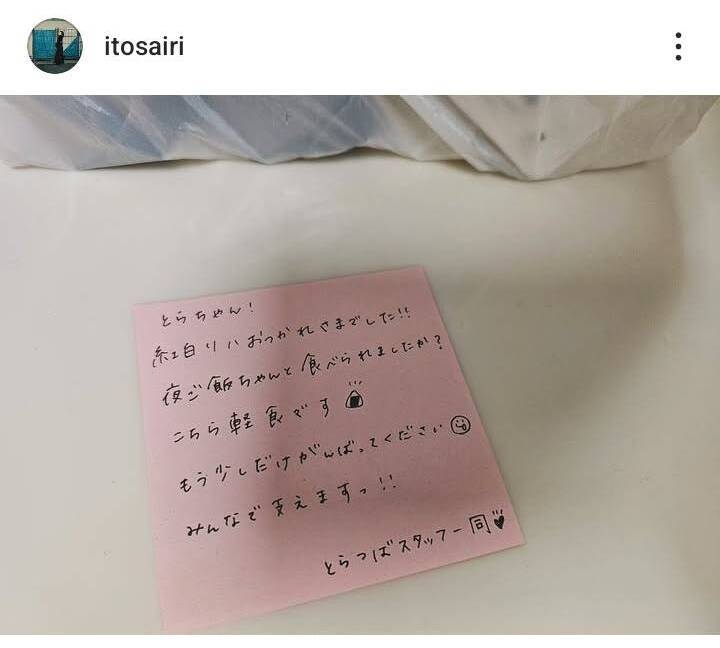 itosairi
とらちゃん!
紅白リハおつかれさまでした!!
夜ご飯ちゃんと食べられましたか?
こちら軽食です🍙
もう少しだけがんばってください☺
みんなで支えますっ!!
とらつばスタッフ一同♥